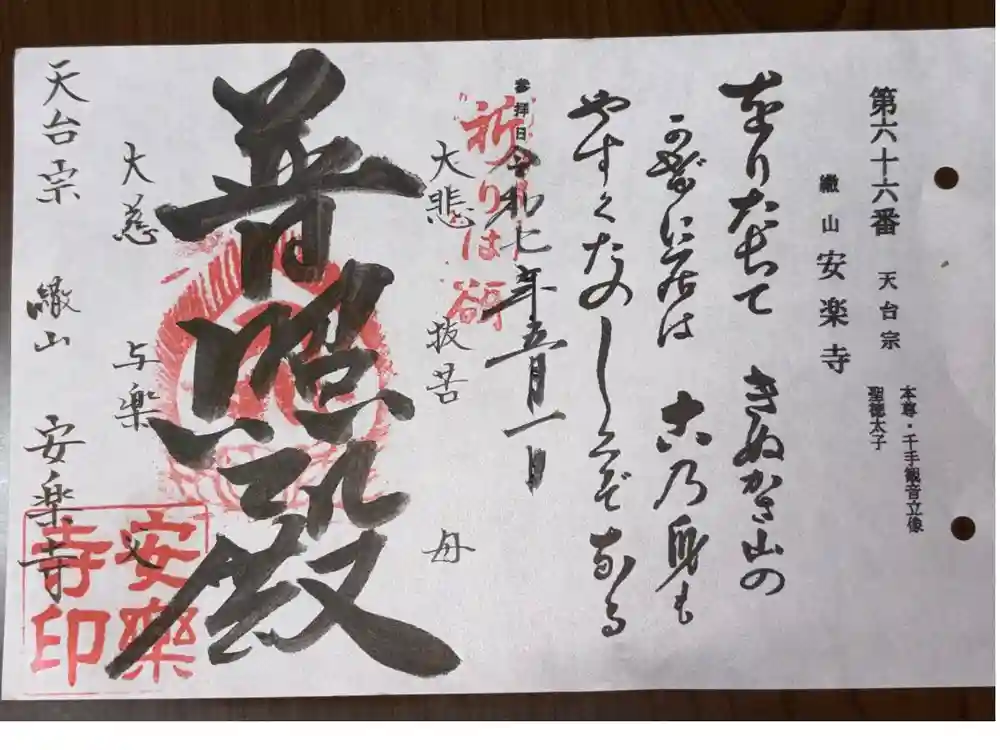 第六十六番 天台宗
本尊・千手観音立像
聖徳太子
繖山 安楽寺
をりたちて きぬかさ山の
かげに居は 古乃身も
やすくたのしくぞなる
参拝日 令和七年五月一日
祈りは
大悲 抜苦 母
普照殿
大慈 与楽 父
天台宗 繖山 安楽寺
安樂
寺印